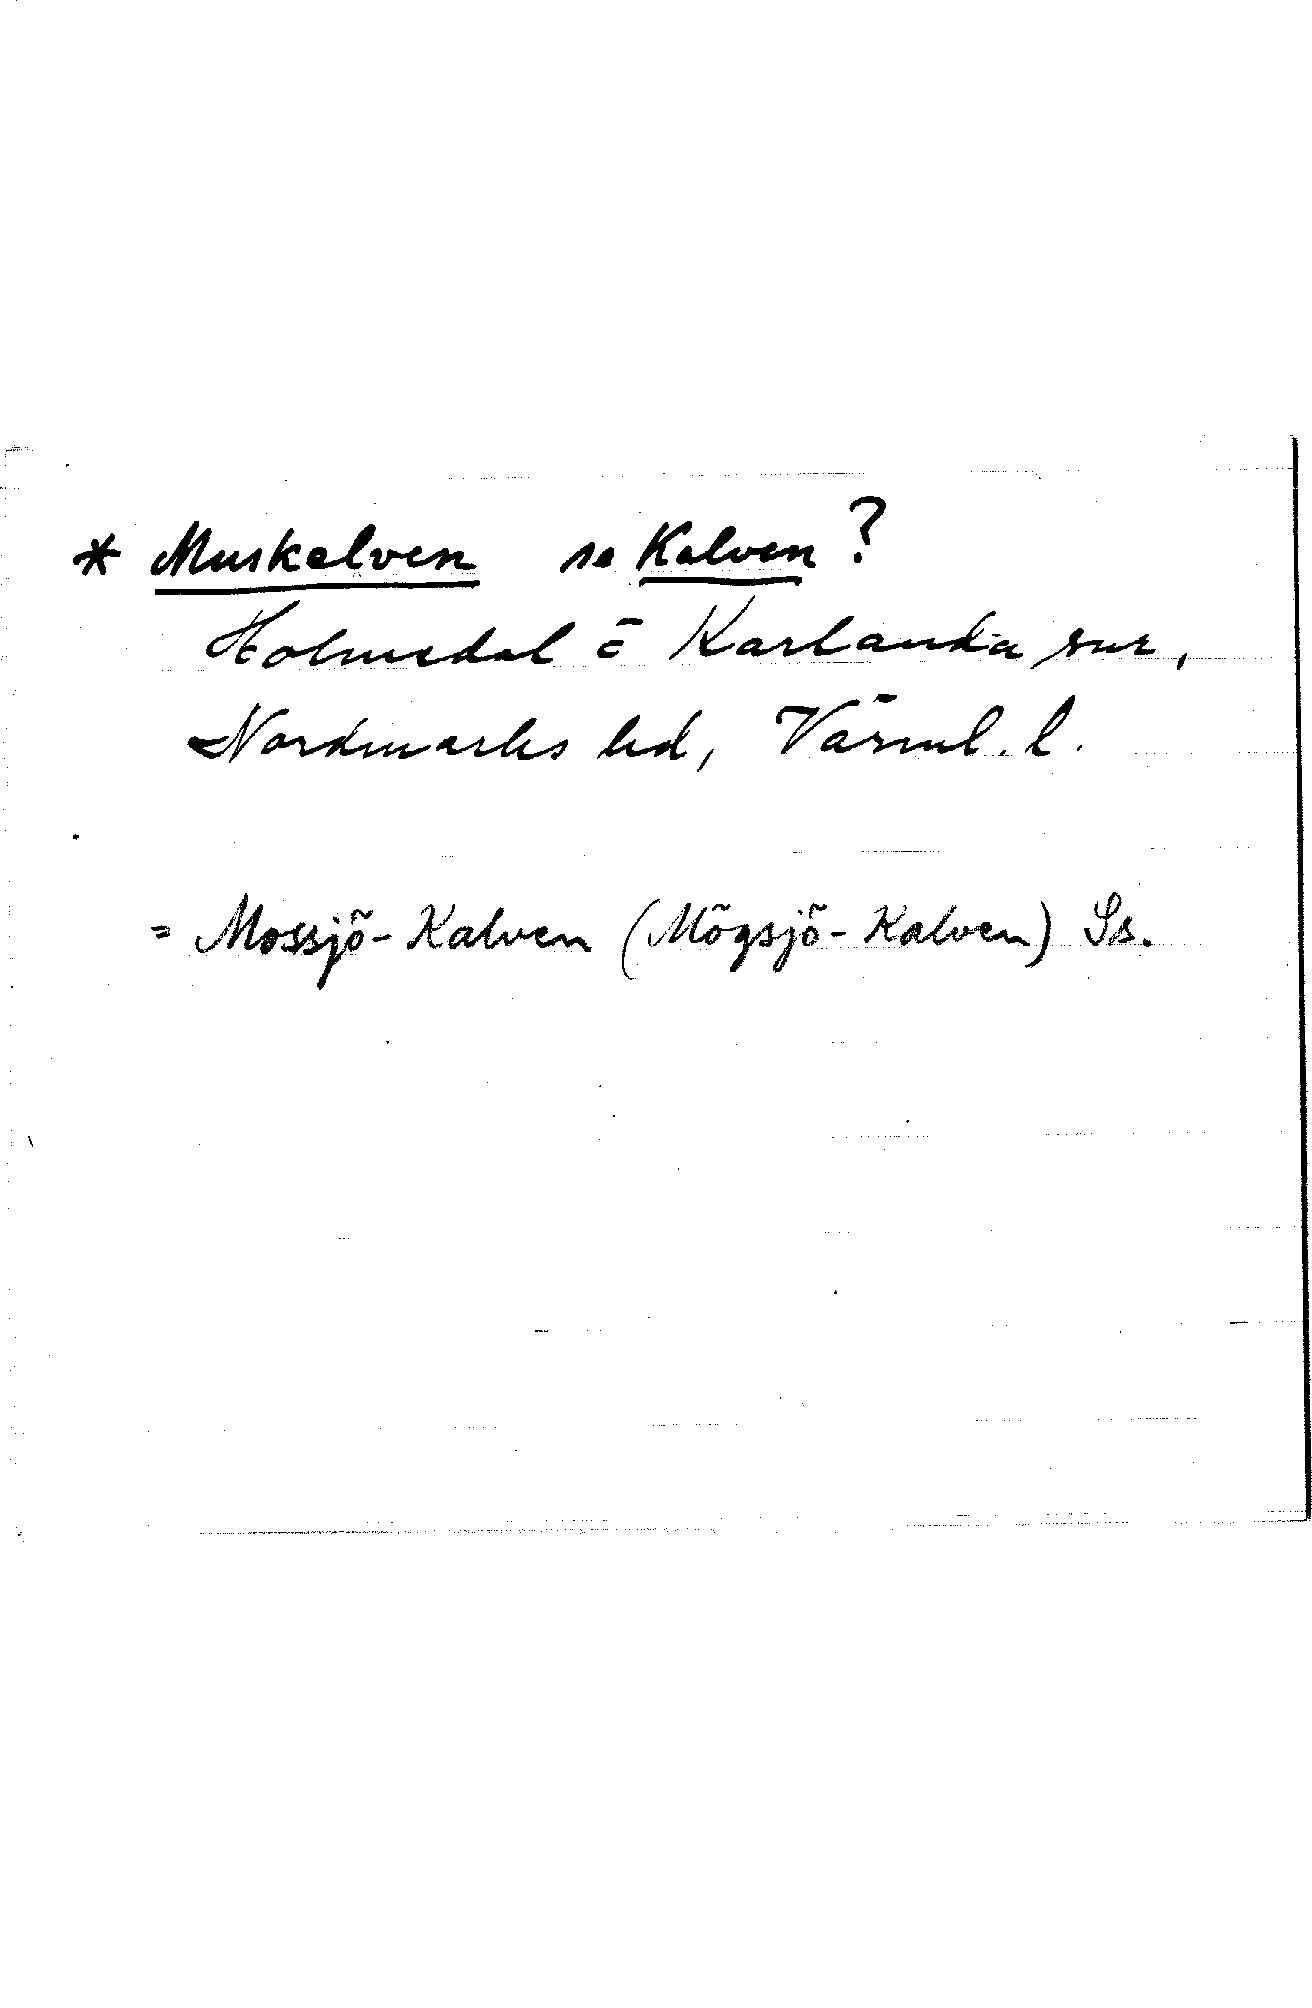 * Muskelven se Kalven?
Holmedal o Karlanda snr,
Nordmarks hd, Värml. l.
= Mossjö-Kalven (Mögsjö-Kalven) Ss.